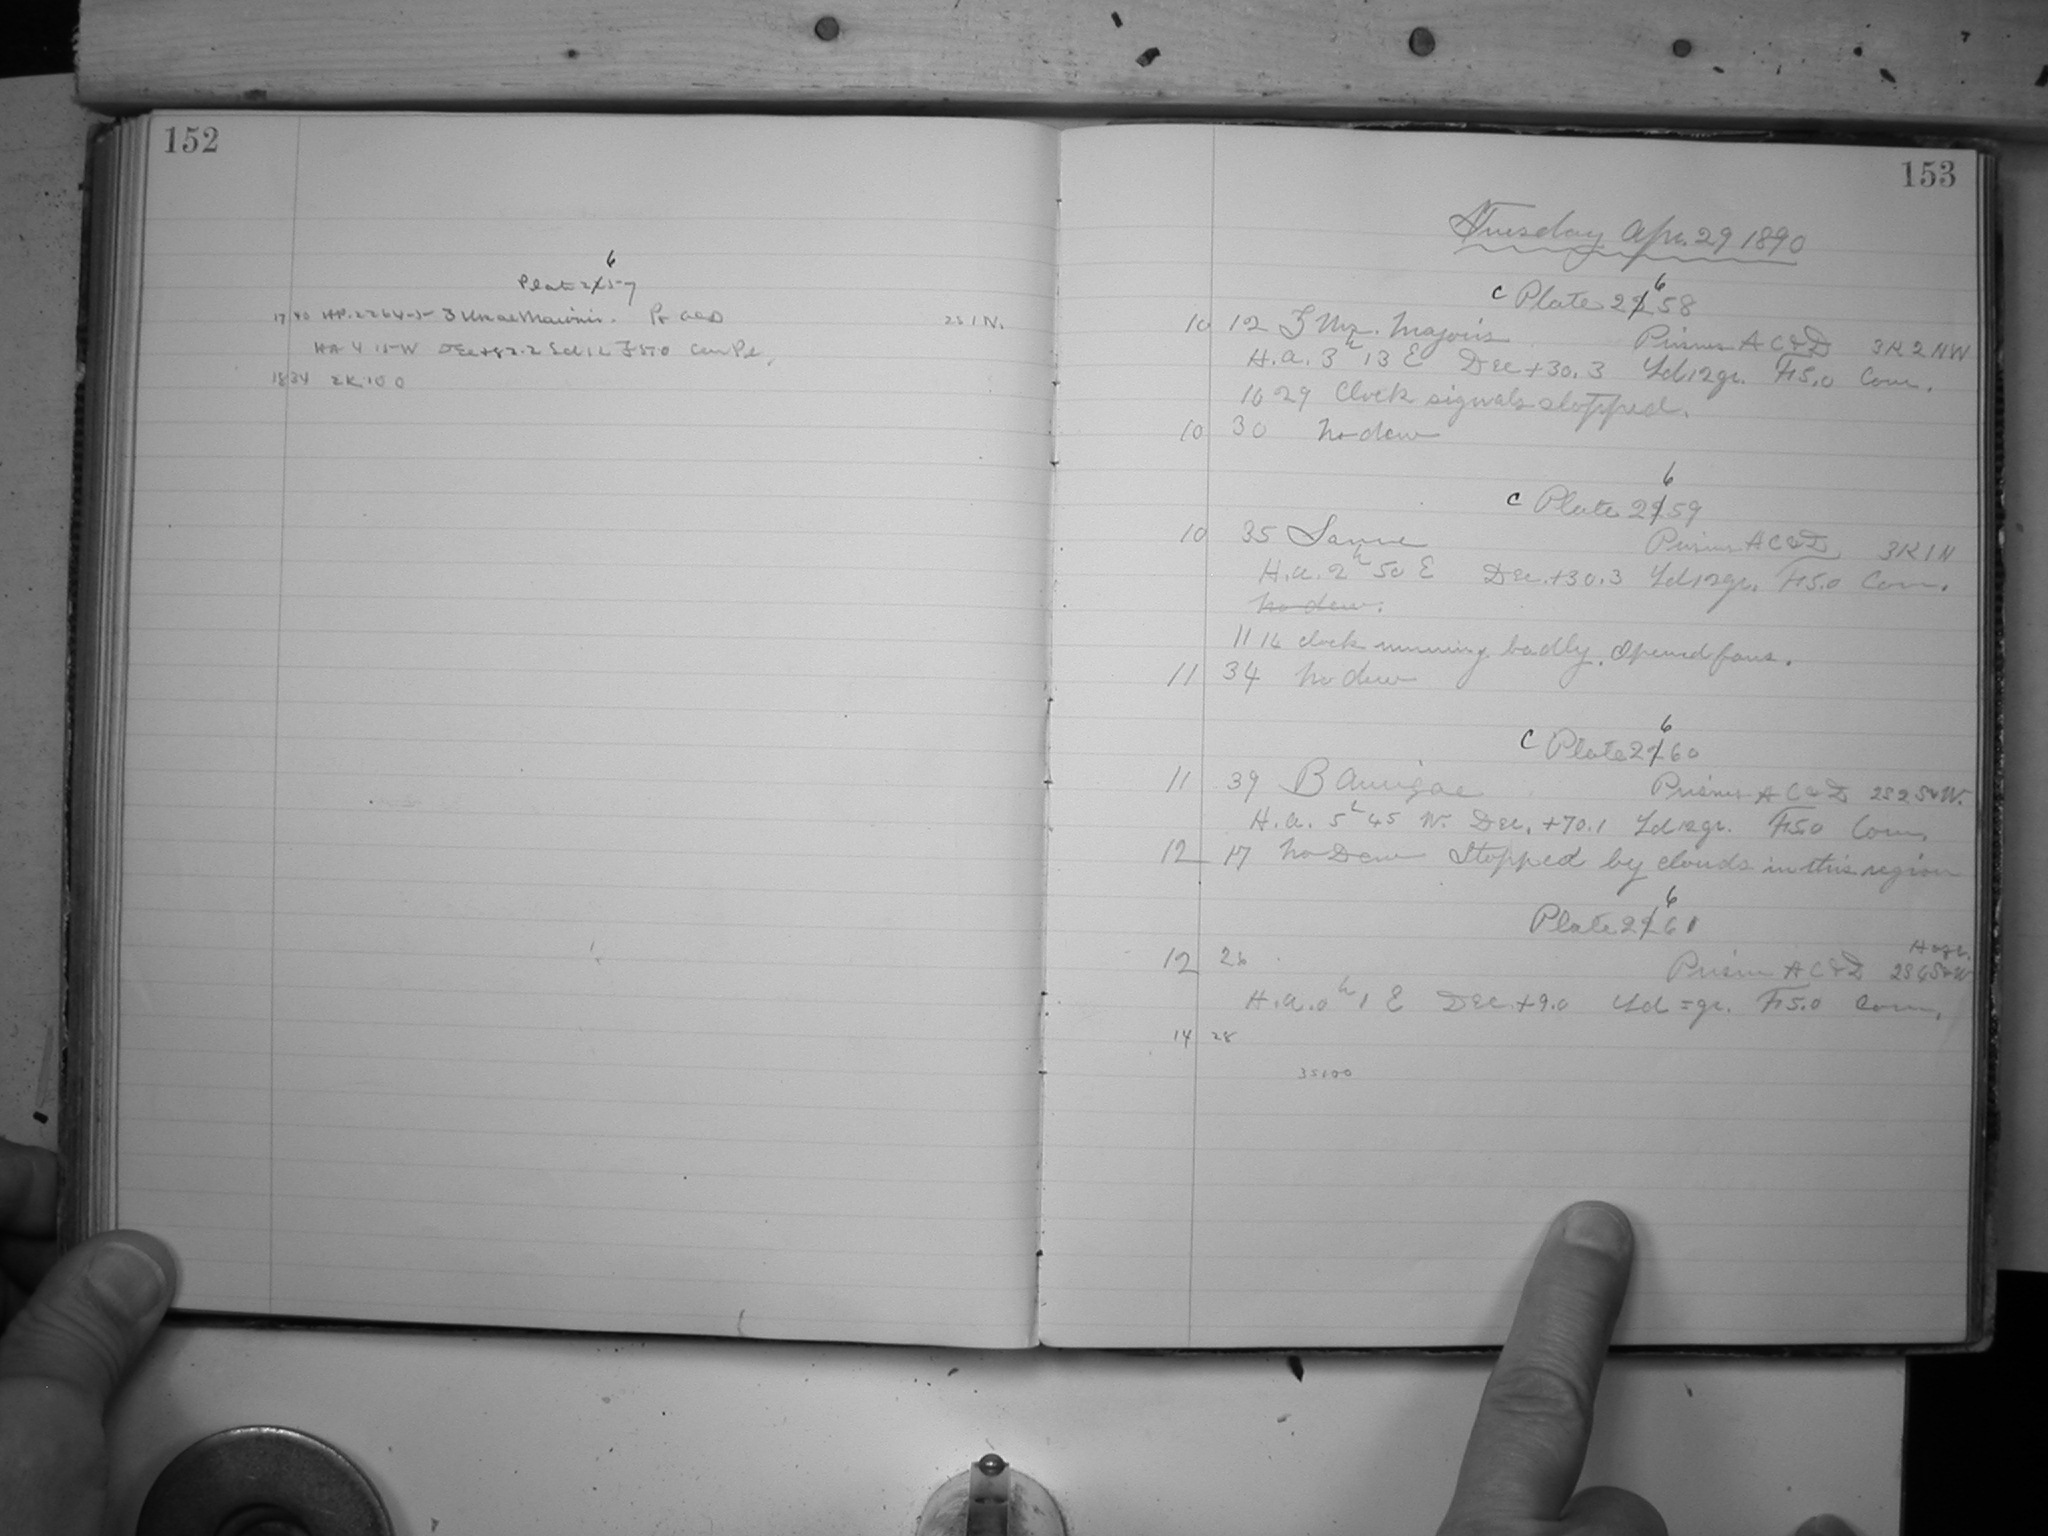 152
6
Plate 2257
17 40 HP. 2264-5- 3 Ursae Majoris. Pr ACD 2S 1 N.
HA 4 15 W Dec +82.2 Sd 12 F 51.0 Com Pl,
18 34 2K 100
153
Tuesday Apr. 29 1890
6
C Plate 2258
10 12 ζ Urs. Majoris Prisms A C & D 3K 2 NW
H.a. 3h 13 E Dec +30.3 Ld 12 gr. F15.0 Com.
10 29 Clock signals stopped.
10 30 No dew
6
C Plate 2259
10 35 Same Prisms A C & D 3K 1 N
H.a. 2h 50 E Dec. +30.3 Ld 12 gr. F15.0 Com.
No dew.
11 16 clock running badly. Opened fans.
11 34 No dew
6
C Plate 2260
11 39 B Aurigae Prisms A C & D 2S 2 S&W.
H.a. 5h 45 W. Dec. +70.1 Ld 12 gr. F15.0 Com.
12 17 No Dew Stopped by clouds in this region
6
Plate 2261
Haze.
12 26 Prism A C & D 2S 6 S&W
H.a. 0h 1 E Dec. +9.0 Ld = gr. F15.0 Com.
14 28
3S100